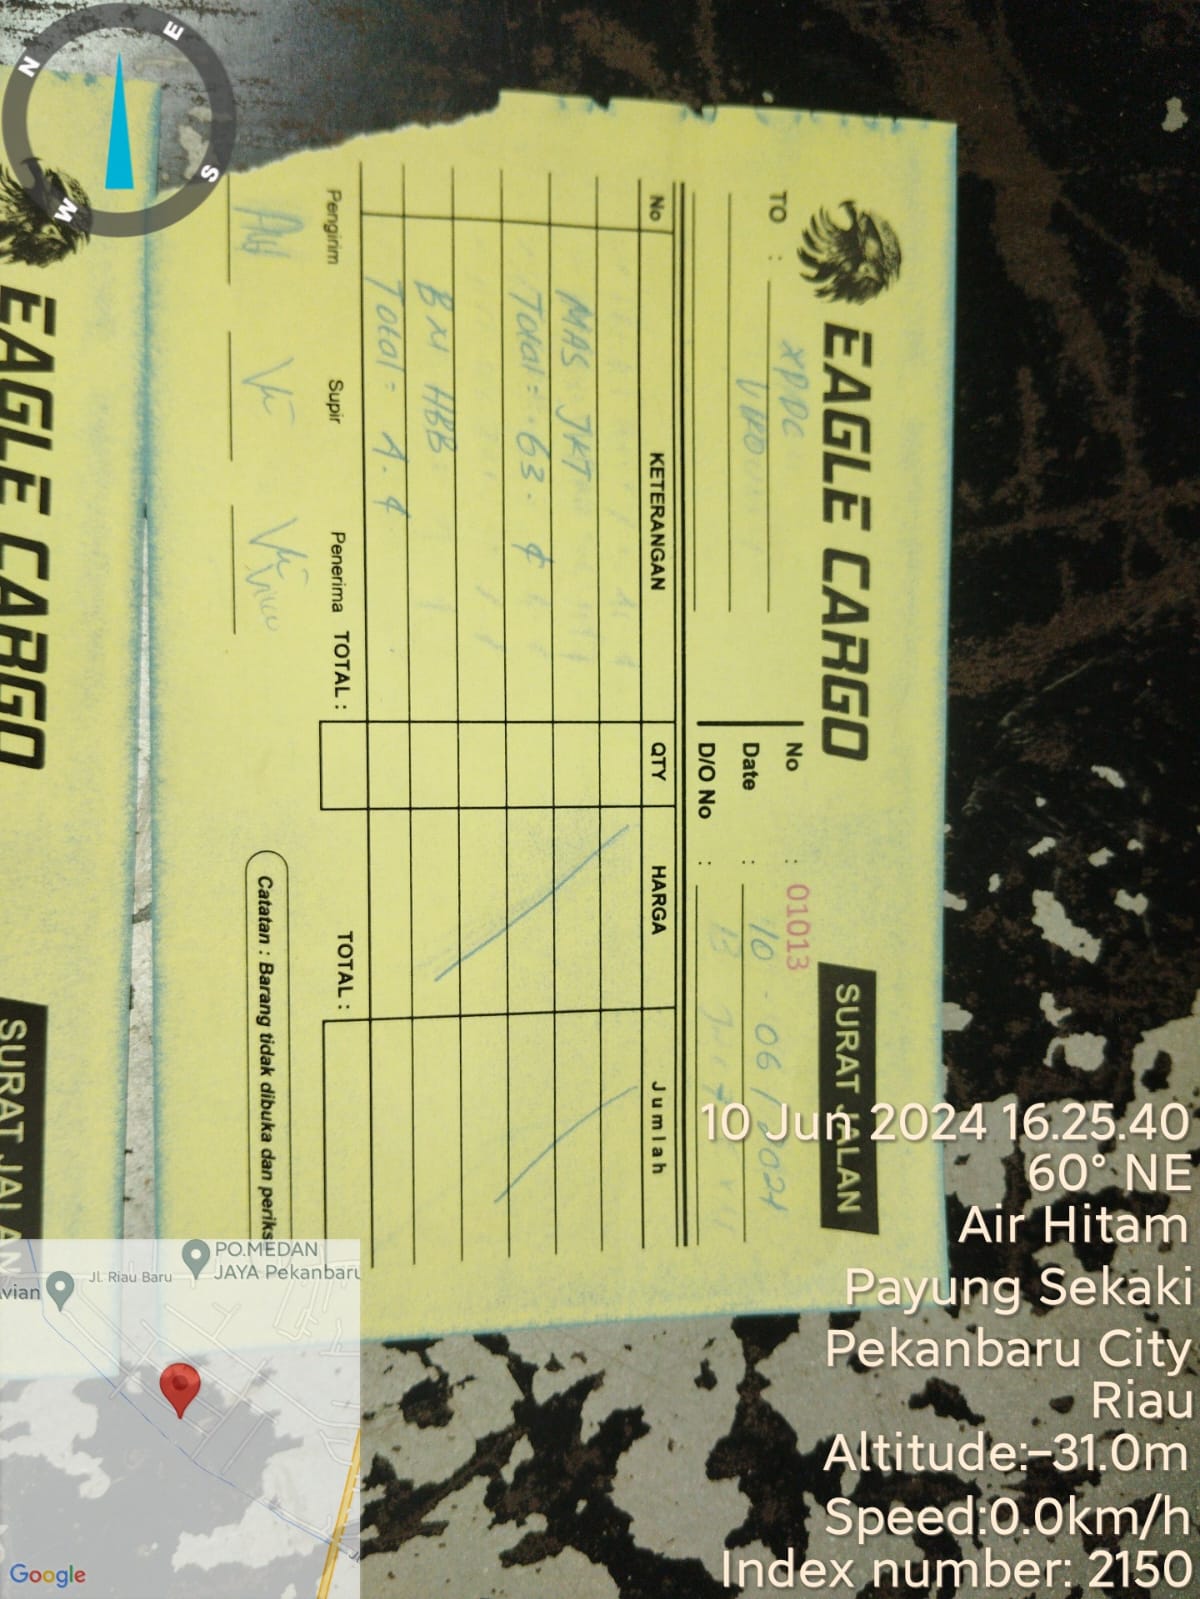 EAGLE CARGO
SURAT JALAN
TO :
XPDC
No : 01013
Date : 10 - 06 / 2024
D/O No :
No KETERANGAN QTY HARGA Jumlah
MAS JKT
Total = 63 . ¢
BM HBB
Total = 4 . ¢
Pengirim Supir Penerima TOTAL : TOTAL :
Catatan : Barang tidak dibuka dan periksa
EAGLE CARGO
SURAT JALAN
N
E
S
W
10 Jun 2024 16.25.40
60° NE
Air Hitam
Payung Sekaki
Pekanbaru City
Riau
Altitude:-31.0m
Speed:0.0km/h
Index number: 2150
PO.MEDAN
JAYA Pekanbaru
Jl. Riau Baru
vian
Google